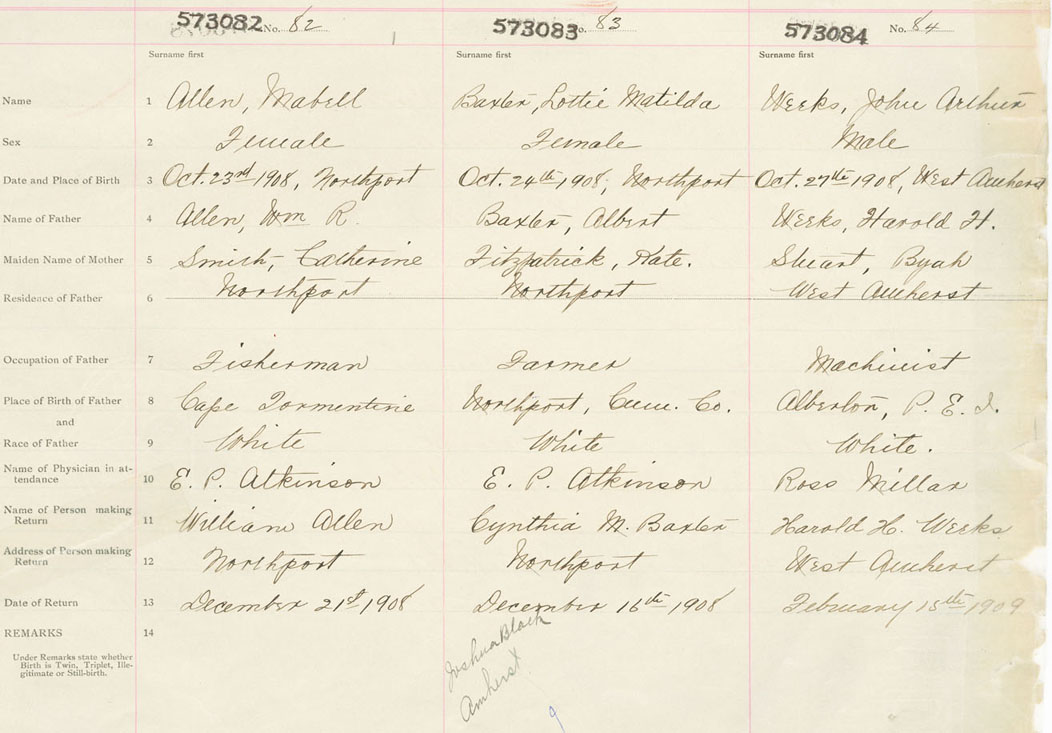 573082 No. 82
573083 o. 83
573084 No. 84
Surname first
Surname first
Surname first
Name 1 Allen, Mabell Baxter, Lottie Matilda Weeks, John Arthur
Sex 2 Female Female Male
Date and Place of Birth 3 Oct. 23rd 1908, Northport Oct. 24th 1908, Northport Oct. 27th 1908, West Amherst
Name of Father 4 Allen, Wm R. Baxter, Albert Weeks, Harold H.
Maiden Name of Mother 5 Smith, Catherine Fitzpatrick, Kate. Stuart, Byah
Residence of Father 6 Northport Northport West Amherst
Occupation of Father 7 Fisherman Farmer Machinist
Place of Birth of Father 8 Cape Tormentine Northport, Cum. Co. Alberton, P. E. I.
and
Race of Father 9 White White White.
Name of Physician in at-
tendance 10 E. P. Atkinson E. P. Atkinson Ross Millar
Name of Person making
Return 11 William Allen Cynthia M. Baxter Harold H. Weeks
Address of Person making
Return 12 Northport Northport West Amherst
Date of Return 13 December 21st 1908 December 16th 1908 February 15th 1909
REMARKS 14
Under Remarks state whether
Birth is Twin, Triplet, Ille-
gitimate or Still-birth.
Joshua Black
Amherst
9